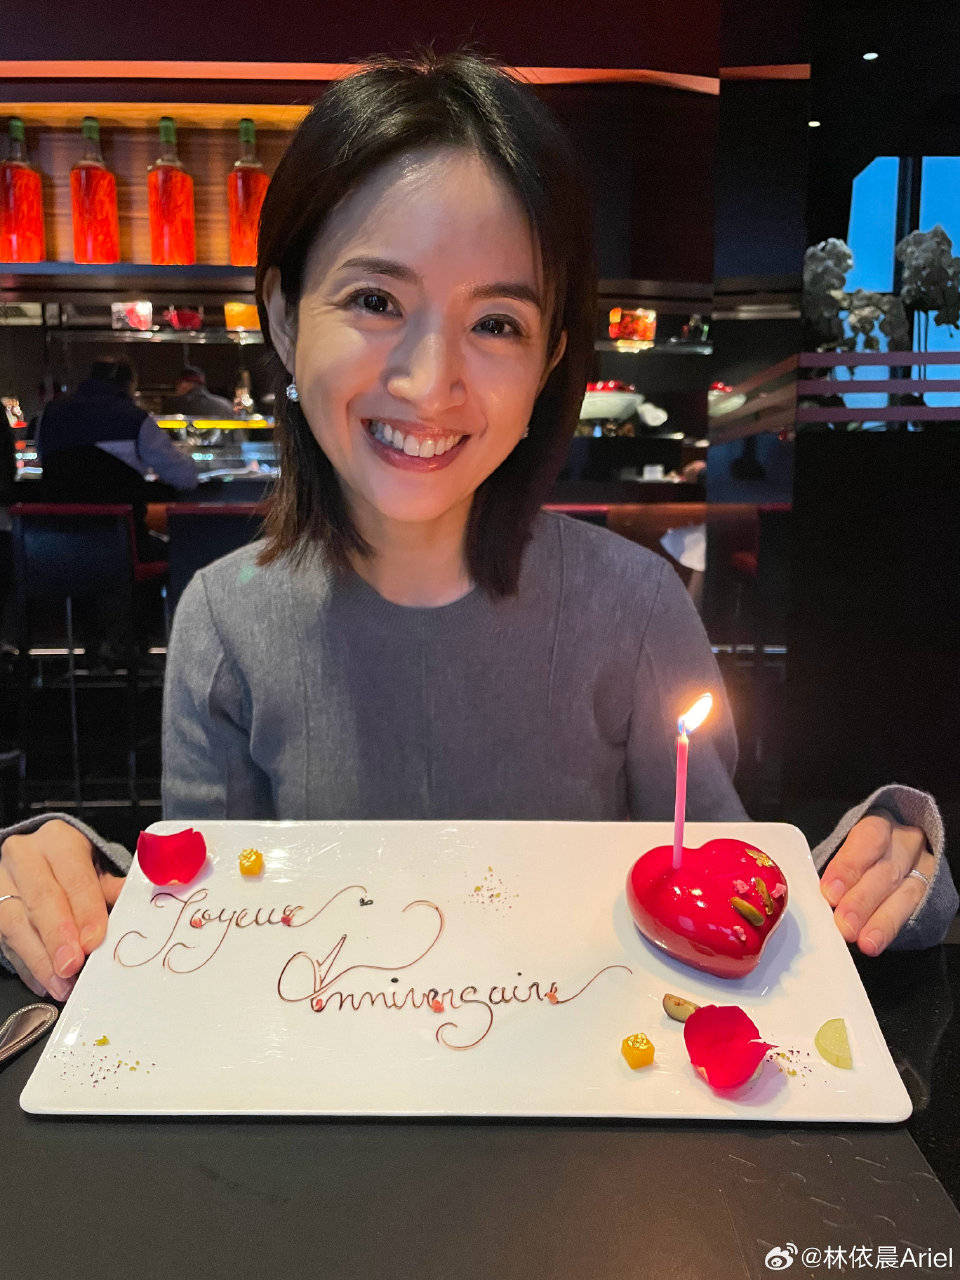 Joyeux
Anniversaire
@林依晨Ariel